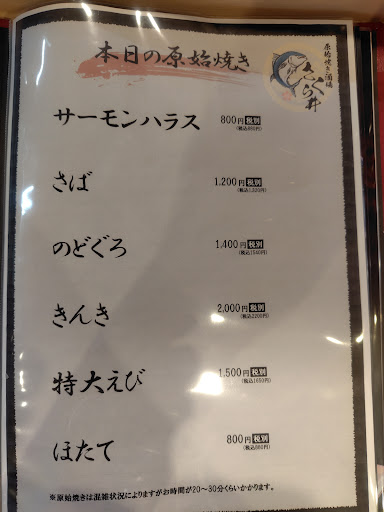 本日の原始焼き
原始焼き酒場
さくら井
サーモンハラス 800円 税別
(税込880円)
さば 1,200円 税別
(税込1320円)
のどぐろ 1,400円 税別
(税込1540円)
きんき 2,000円 税別
(税込2200円)
特大えび 1,500円 税別
(税込1650円)
ほたて 800円 税別
(税込880円)
※原始焼きは混雑状況によりますがお時間が20〜30分くらいかかります。